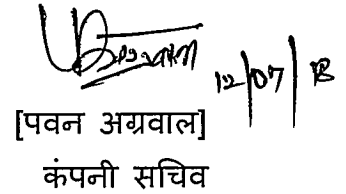 12/07/18
[पवन अग्रवाल]
कंपनी सचिव